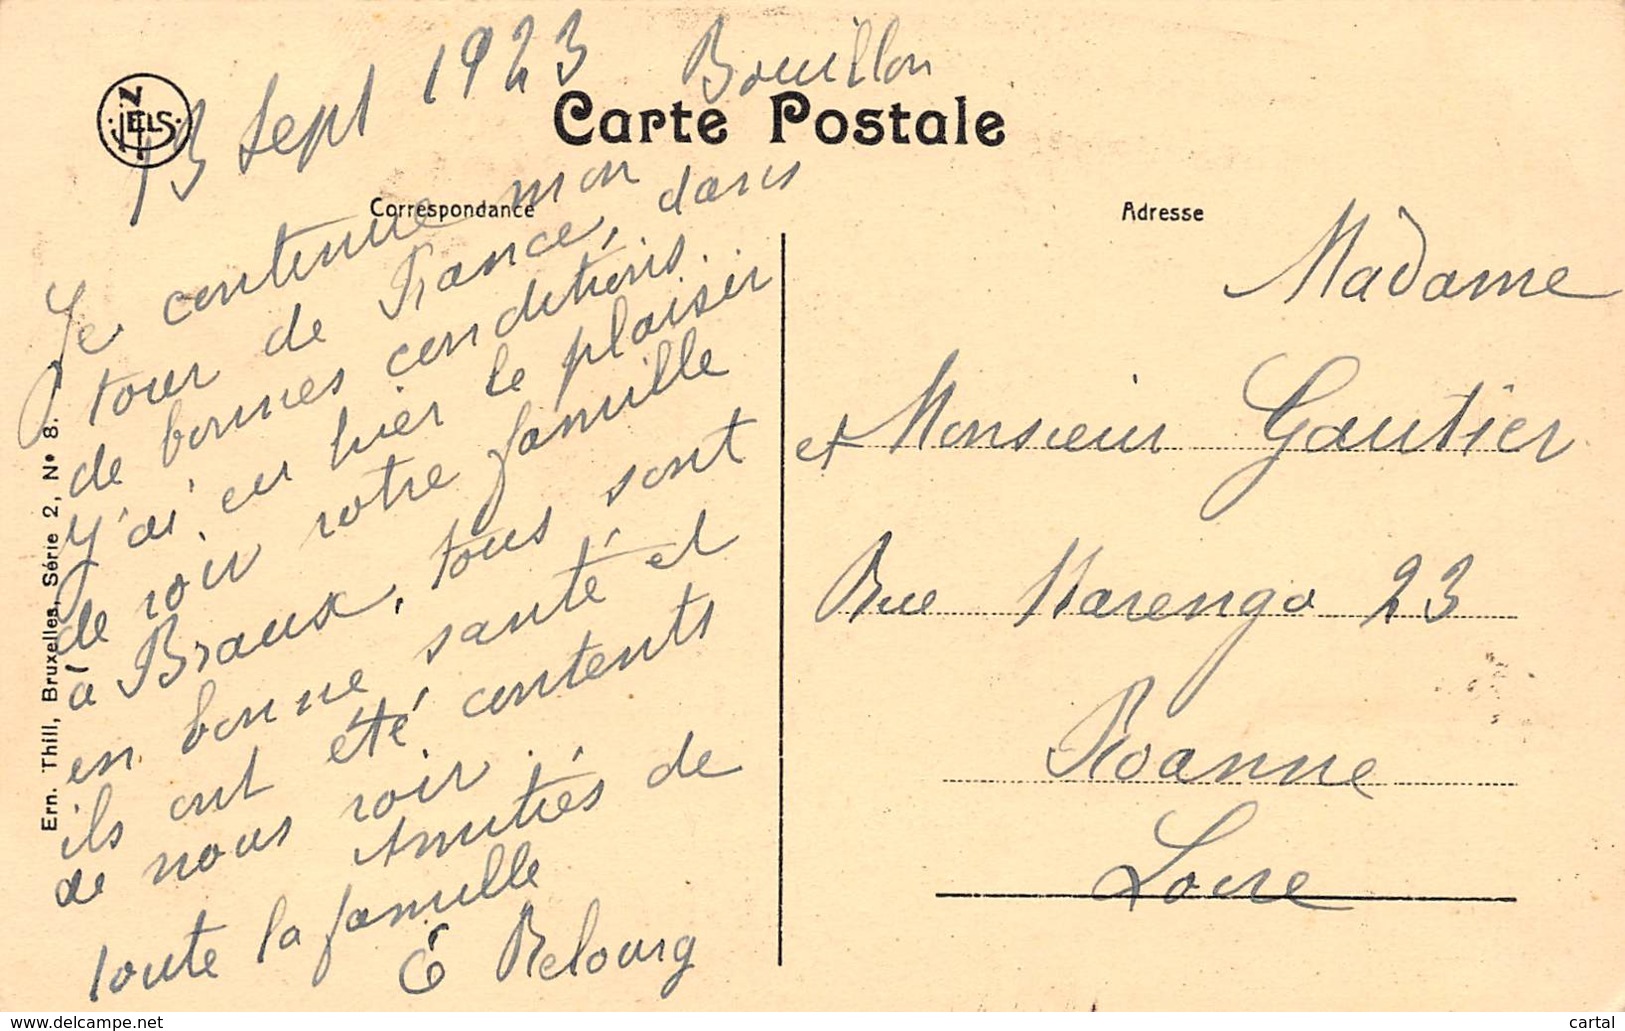 13 Sept 1923 Bouillon
NELS
Carte Postale
Correspondance
Adresse
Je continue mon
tour de France, dans
de bonnes conditions.
J'ai eu hier le plaisir
de voir votre famille
à Braux, tous sont
en bonne santé et
ils ont été contents
de nous voir.
Amitiés de
toute la famille
E Relourg
Madame
et Monsieur Gautier
Rue Marengo 23
Roanne
Loire
Ern. Thill, Bruxelles, Série 2, No 8.
www.delcampe.net
cartal